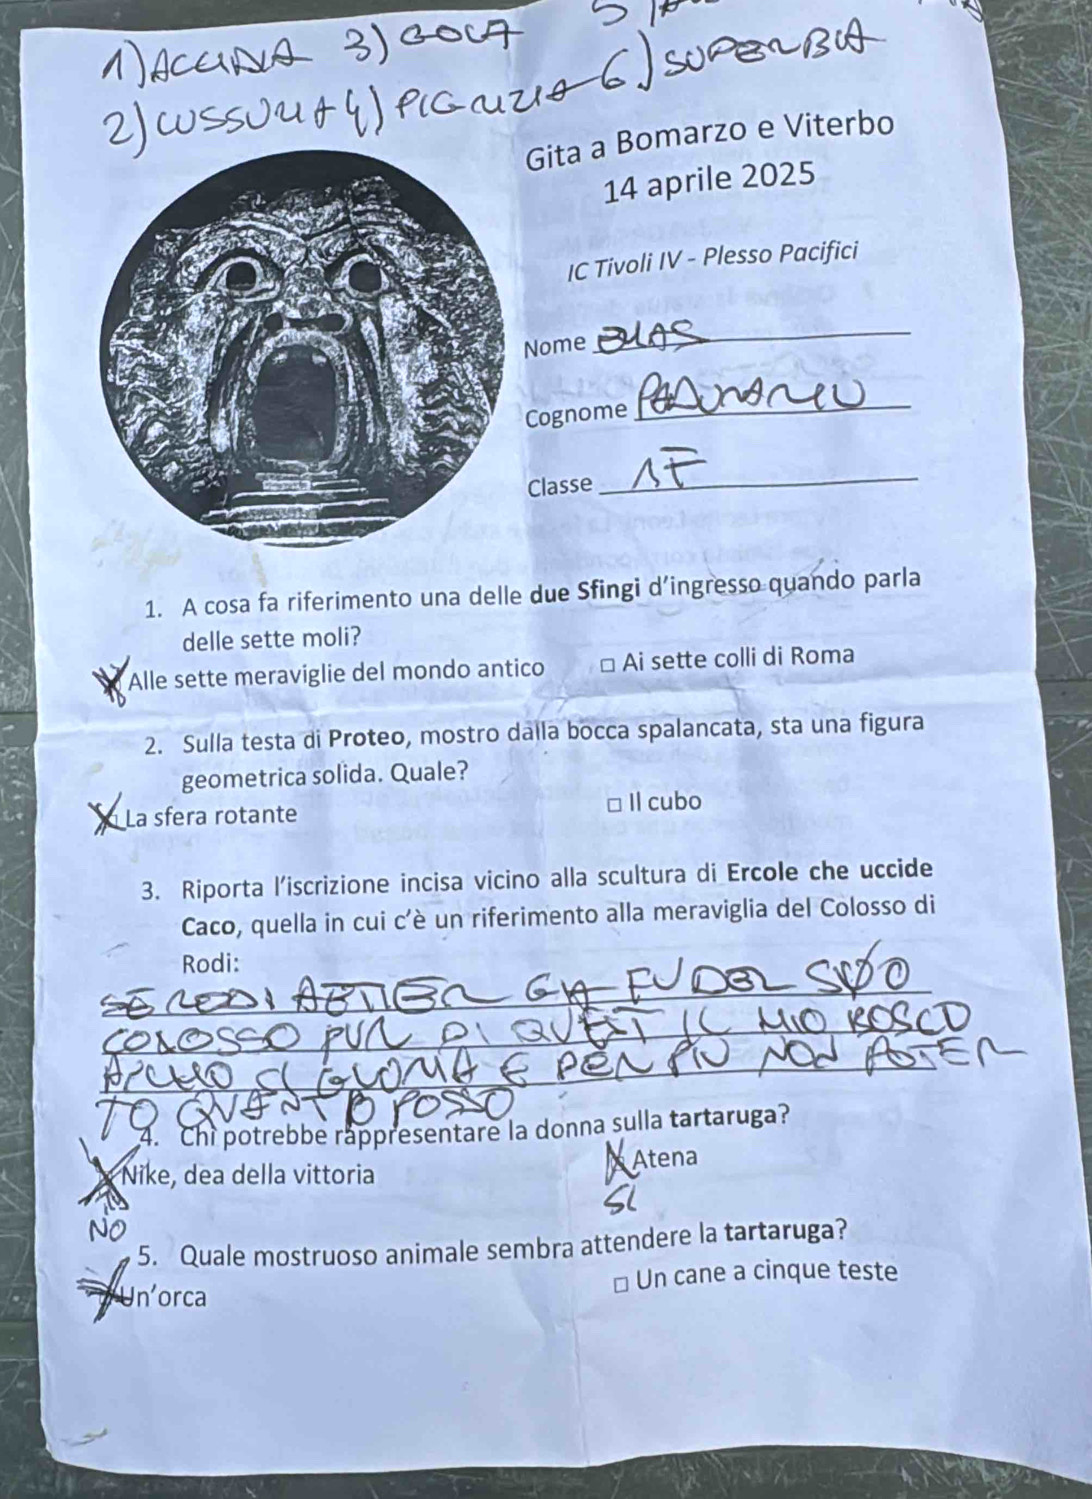 1) ACCIDIA 3) GOLA 5)
2) LUSSURIA 4) PIGRIZIA 6) SUPERBIA
Gita a Bomarzo e Viterbo
14 aprile 2025
IC Tivoli IV - Plesso Pacifici
Nome
Cognome
Classe 1F
1. A cosa fa riferimento una delle due Sfingi d'ingresso quando parla
delle sette moli?
Alle sette meraviglie del mondo antico □ Ai sette colli di Roma
2. Sulla testa di Proteo, mostro dalla bocca spalancata, sta una figura
geometrica solida. Quale?
La sfera rotante □ Il cubo
3. Riporta l'iscrizione incisa vicino alla scultura di Ercole che uccide
Caco, quella in cui c'è un riferimento alla meraviglia del Colosso di
Rodi:
SE RODI ALTIER GIA FU DEL SUO
COLOSSO PUR DI QUEST IL MIO BOSCO
SI GLORIA E PER PIU NON POTER
QUANTO POSSO
4. Chi potrebbe rappresentare la donna sulla tartaruga?
Nike, dea della vittoria Atena
NO SI
5. Quale mostruoso animale sembra attendere la tartaruga?
Un'orca □ Un cane a cinque teste